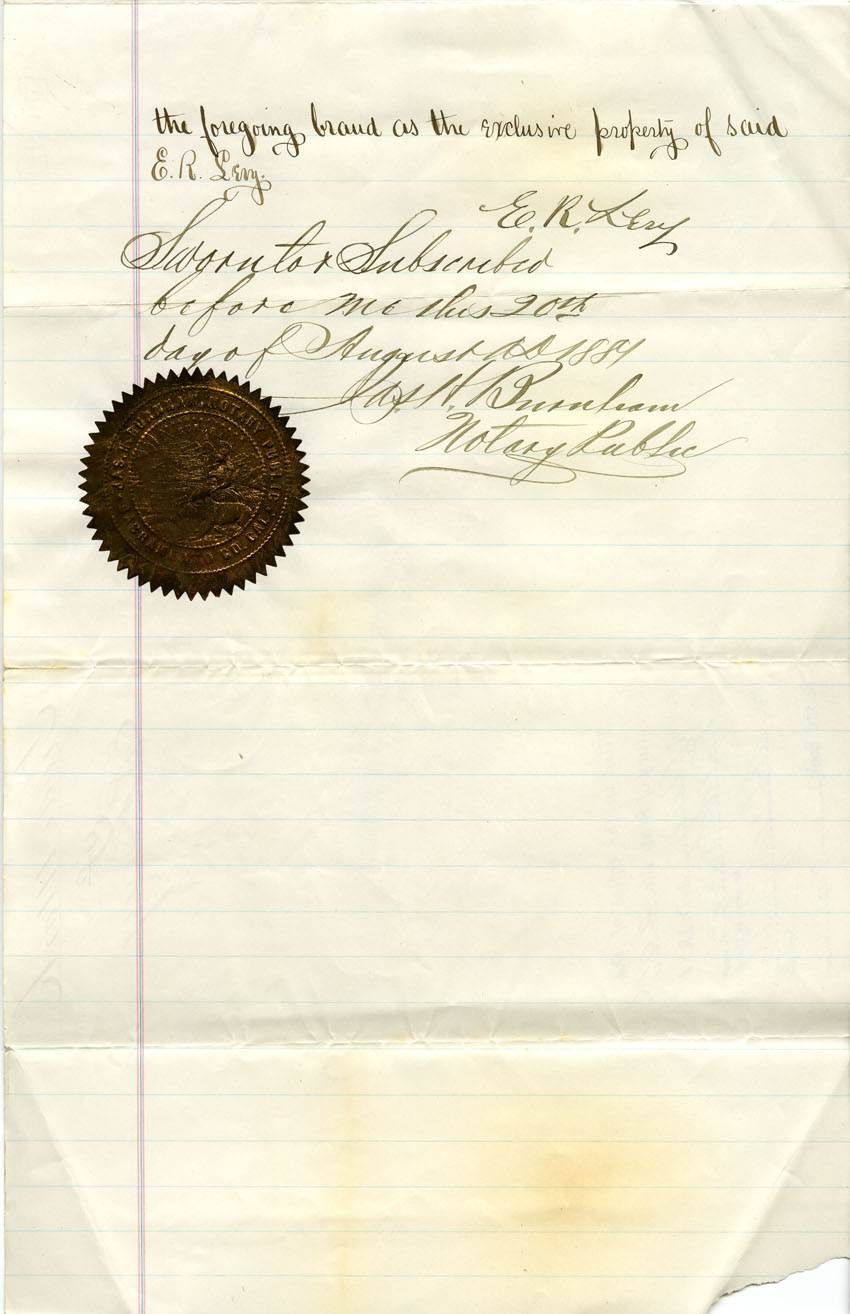 the foregoing brand as the exclusive property of said
E. R. Levy.
E. R. Levy
Sworn to & Subscribed
before me this 20th
day of August AD 1884
Jas. H. Burnham
Notary Public
NOTARY PUBLIC
CO. CAL.